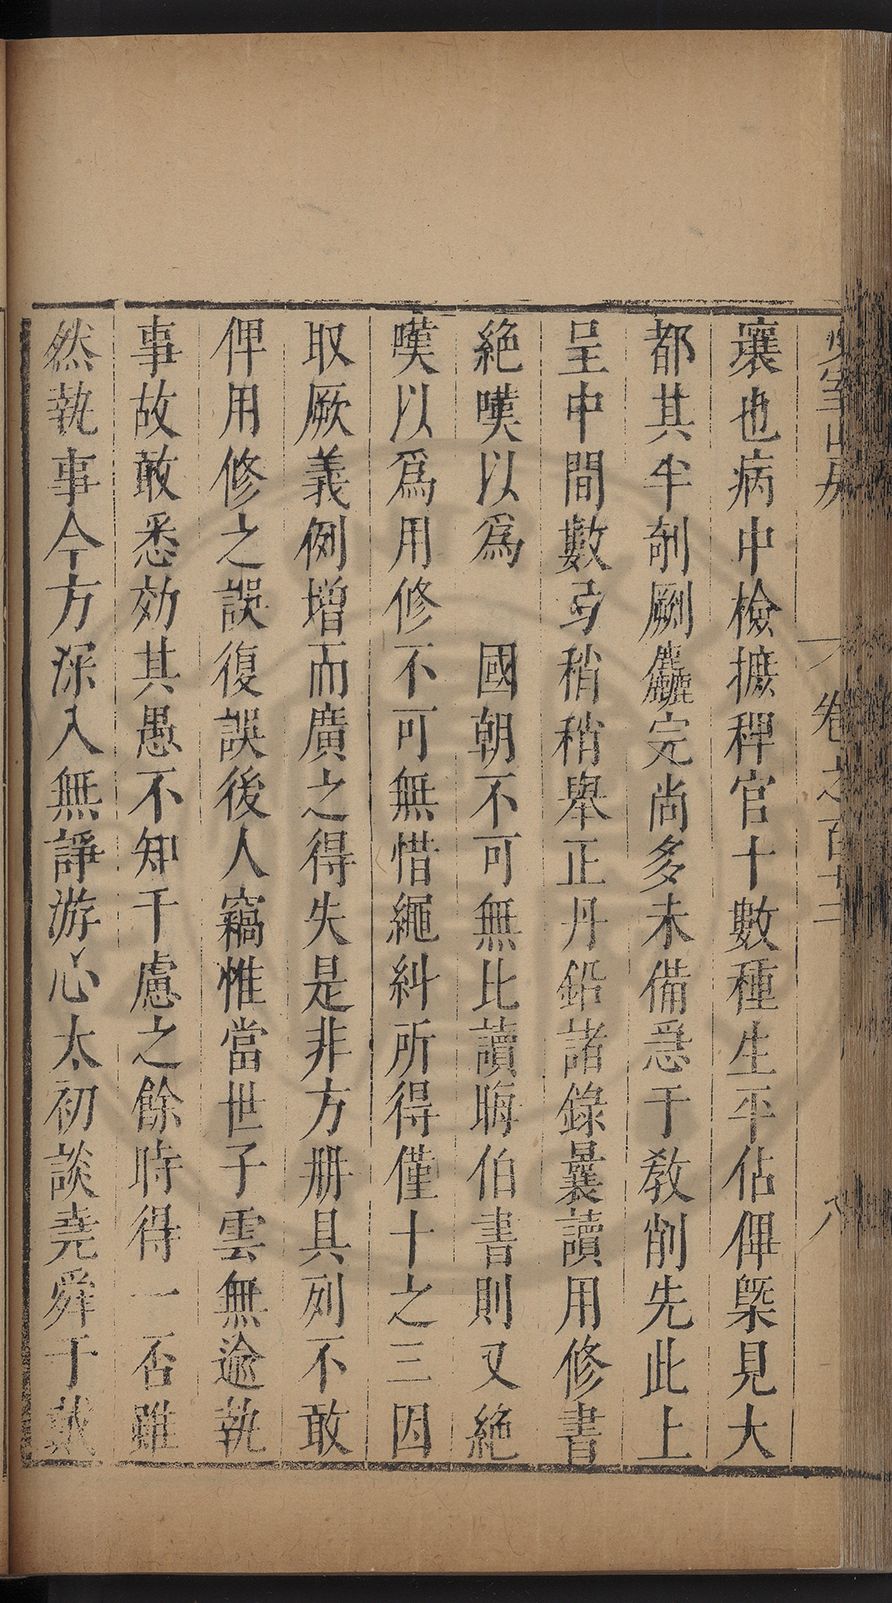 壤也病中檢摭稗官十數種生平佔俾槩見大
都其半剞劂麤完尚多未備亟于教削先此上
呈中間數弓稍稍舉正丹鉛諸錄曩讀用修書
絕嘆以爲　國朝不可無比讀晦伯書則又絕
嘆以爲用修不可無惜繩糾所得僅十之三因
取厥義例增而廣之得失是非方册具列不敢
俾用修之誤復誤後人竊惟當世子雲無逾執
事故敢悉効其愚不知千慮之餘時得一否雖
然執事今方深入無諍游心太初談堯舜于戴